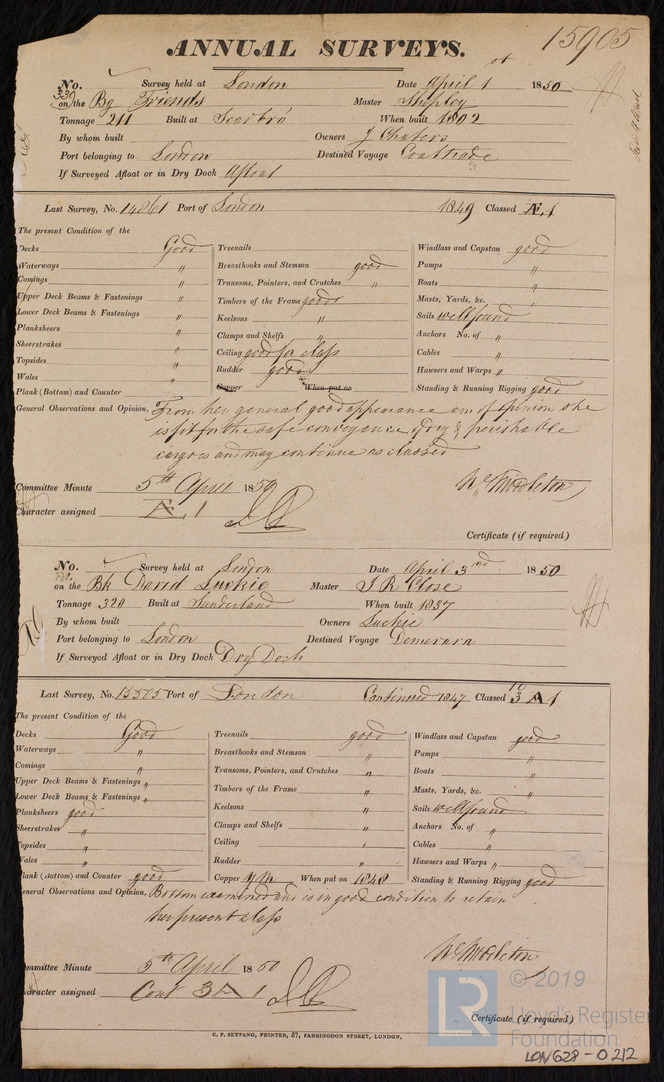 15905
ANNUAL SURVEYS.
No. 330 Survey held at London Date April 1 1850
on the Bg Friends Master Shipley
Tonnage 211 Built at Scarbro' When built 1802
By whom built Owners J Chaters
Port belonging to London Destined Voyage Coal trade
If Surveyed Afloat or in Dry Dock Afloat
Last Survey, No. 14861 Port of London 1849 Classed Æ 1
The present Condition of the
Decks Good
Waterways "
Comings "
Upper Deck Beams & Fastenings "
Lower Deck Beams & Fastenings "
Planksheers "
Sheerstrakes "
Topsides "
Wales "
Plank (Bottom) and Counter "
Treenails
Breasthooks and Stemson good
Transoms, Pointers, and Crutches "
Timbers of the Frame good
Keelsons "
Clamps and Shelfs "
Ceiling good for class
Rudder good
Copper When put on
Windlass and Capstan good
Pumps "
Boats "
Masts, Yards, &c. "
Sails well found
Anchors No. of "
Cables "
Hawsers and Warps "
Standing & Running Rigging good
General Observations and Opinion, From her general good appearance am of opinion she
is fit for the safe conveyance of dry & perishable
cargoes and may continue as classed
Wm Middleton
Committee Minute 5th April 1850
Character assigned Æ 1
Certificate (if required)
No. Survey held at London Date April 3rd 1850
on the Bk David Luckie Master J R Close
Tonnage 320 Built at Sunderland When built 1837
By whom built Owners Luckie
Port belonging to London Destined Voyage Demerara
If Surveyed Afloat or in Dry Dock Dry Dock
Last Survey, No. 13575 Port of London Continued 1847 Classed 10 3 A 1
The present Condition of the
Decks Good
Waterways "
Comings "
Upper Deck Beams & Fastenings "
Lower Deck Beams & Fastenings "
Planksheers good
Sheerstrakes "
Topsides "
Wales "
Plank (Bottom) and Counter good
Treenails good
Breasthooks and Stemson "
Transoms, Pointers, and Crutches "
Timbers of the Frame "
Keelsons "
Clamps and Shelfs "
Ceiling "
Rudder "
Copper YM When put on 1848
Windlass and Capstan good
Pumps "
Boats "
Masts, Yards, &c. "
Sails well found
Anchors No. of "
Cables "
Hawsers and Warps "
Standing & Running Rigging good
General Observations and Opinion, Bottom examined and is in good condition to retain
her present class
Wm Middleton
Committee Minute 5th April 1850
Character assigned Cont 3 A 1
Certificate (if required)
C. F. SEYFANG, PRINTER, 57, FARRINGDON STREET, LONDON.
LR © 2019
Lloyd's Register
Foundation
LON628-0212